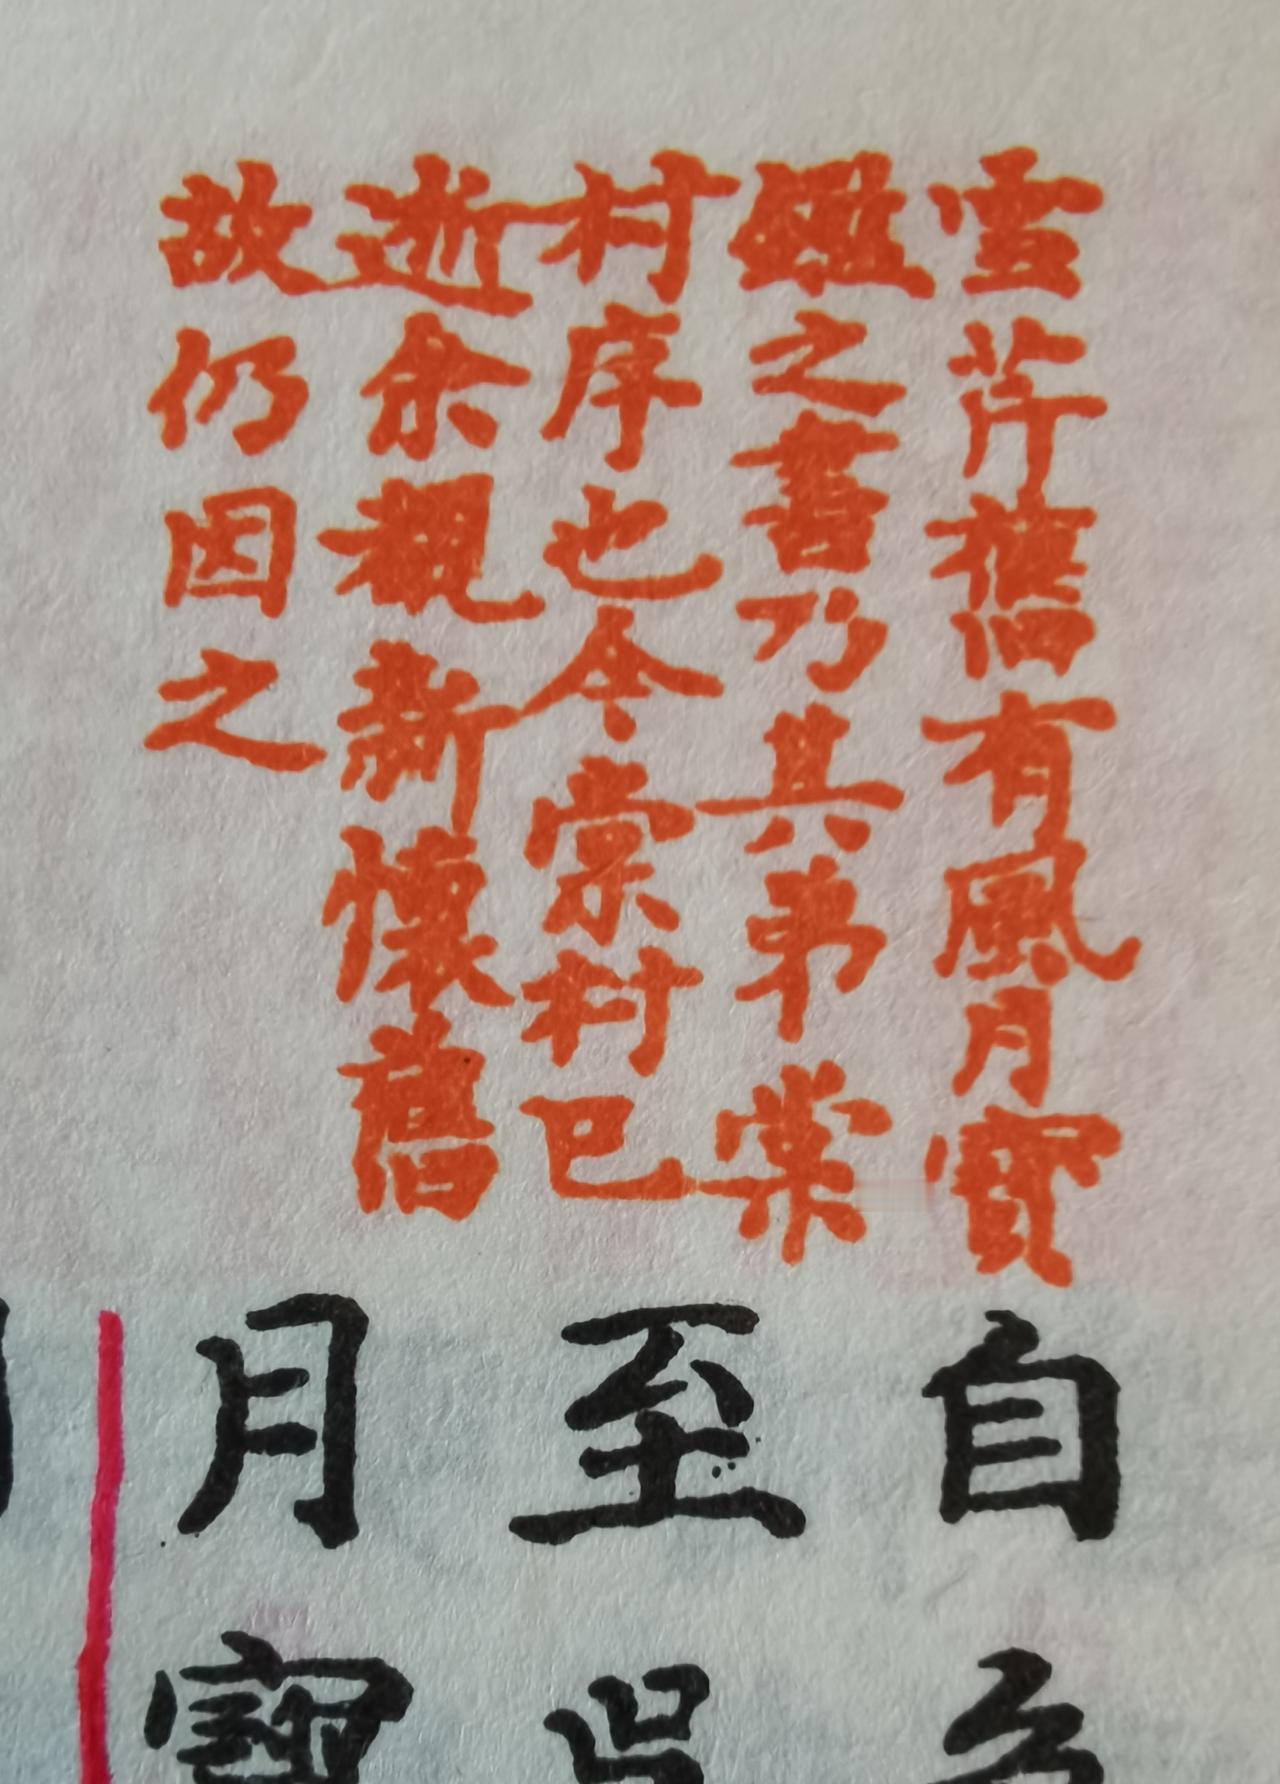 雪芹舊有風月寶
鑑之書乃其弟棠
村序也今棠村已
逝余覩新懷舊
故仍因之
自色
至吳
月寶